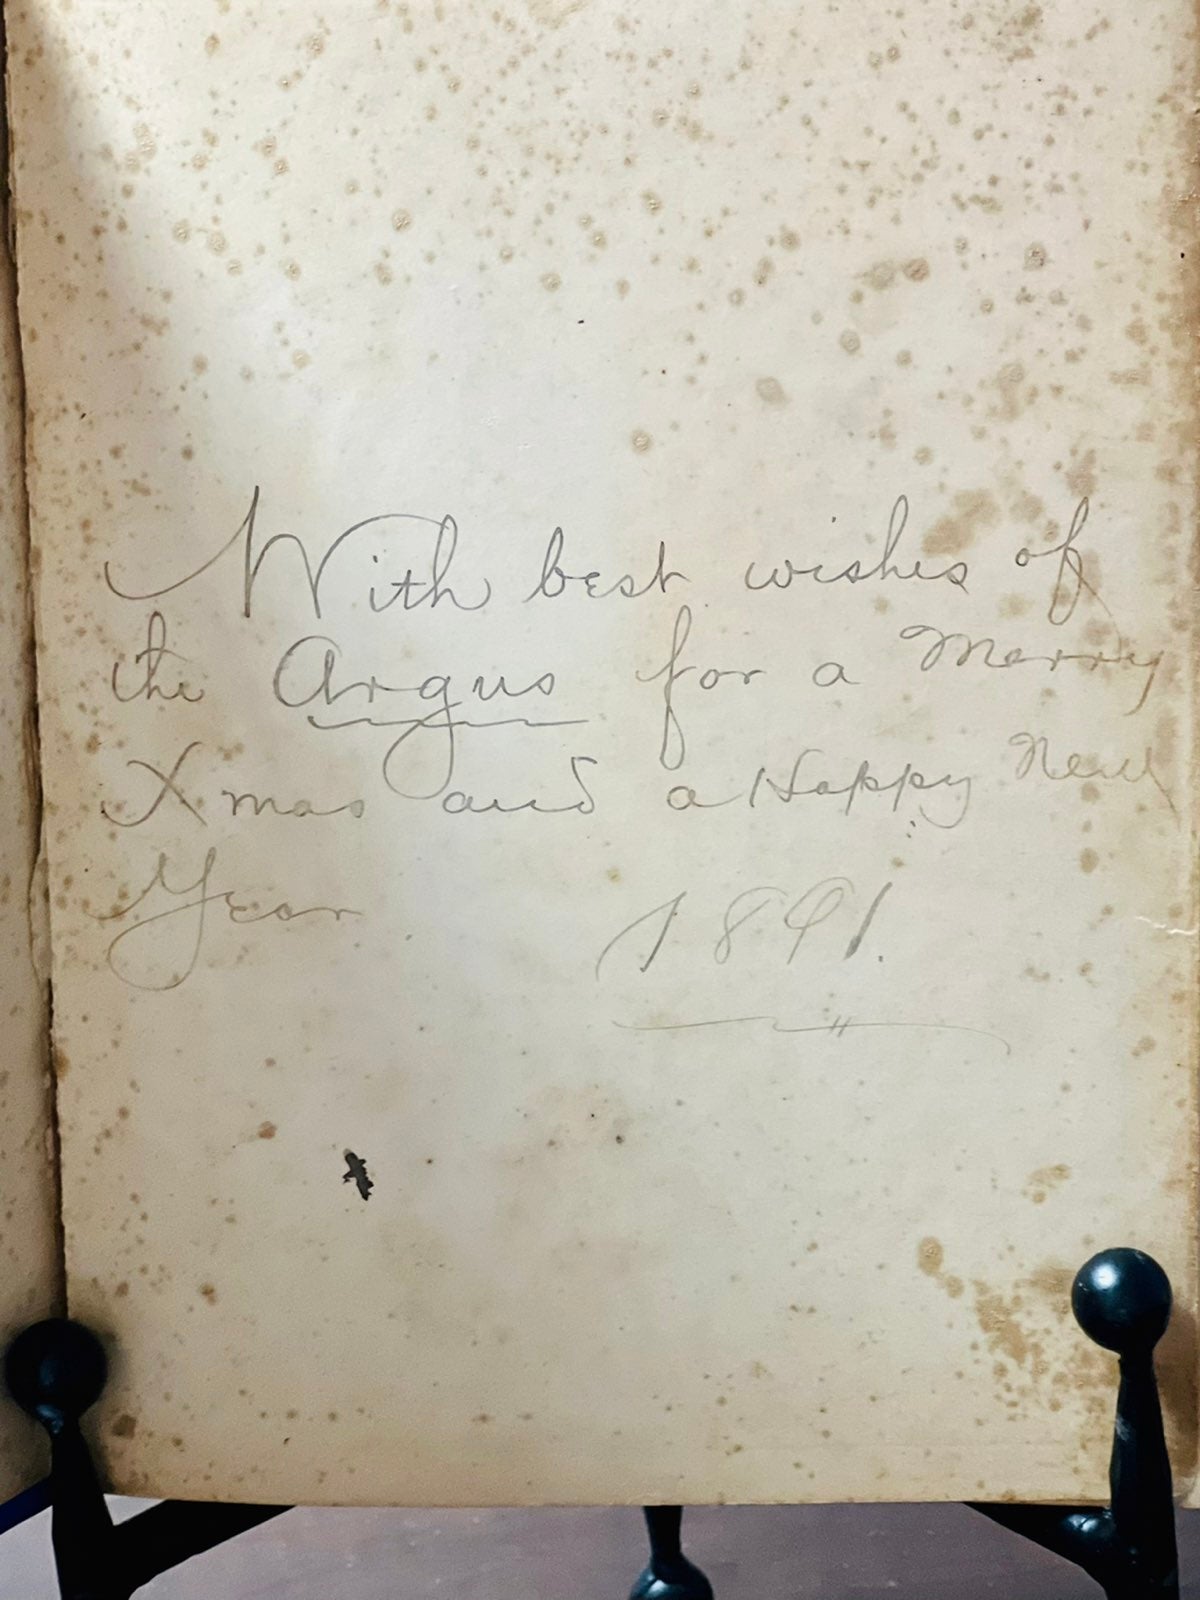 With best wishes of
the Argus for a Merry
Xmas and a Happy New
Year 1891.